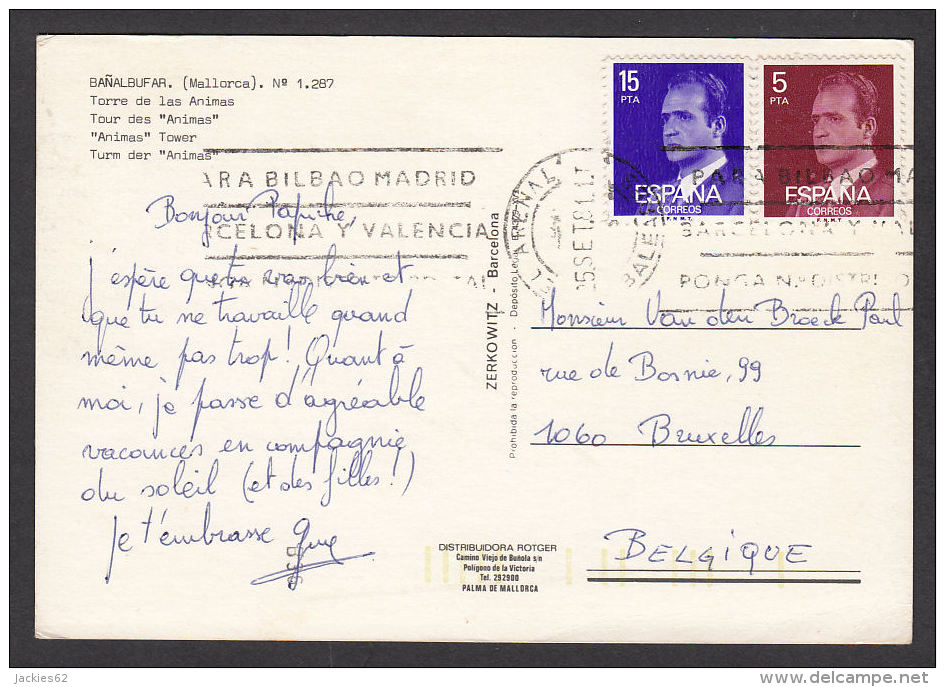 BAÑALBUFAR. (Mallorca). Nº 1.287
Torre de las Animas
Tour des "Animas"
"Animas" Tower
Turm der "Animas"
ARA BILBAO MADRID
RCELONA Y VALENCIA
Bonjour Papiche,
j'espère que tu vas bien et
que tu ne travaille quand
même pas trop! Quant à
moi, je passe d'agréable
vacances en compagnie
du soleil (et des filles!)
je t'embrasse Guy
ZERKOWITZ - Barcelona
Prohibida la reproducción - Depósito Legal
15
PTA
ESPAÑA
CORREOS
F.N.M.T.
5
PTA
ESPAÑA
CORREOS
F.N.M.T.
EL ARENAL
BALEARES
PARA BILBAO MA
BARCELONA Y VAL
PONGA N.º DISTRITO
Monsieur Van den Broeck Paul
rue de Bosnie, 99
1060 Bruxelles
BELGIQUE
DISTRIBUIDORA ROTGER
Camino Viejo de Buñola s/n
Polígono de la Victoria
Tel. 292900
PALMA DE MALLORCA
jackies62
delcampe.net